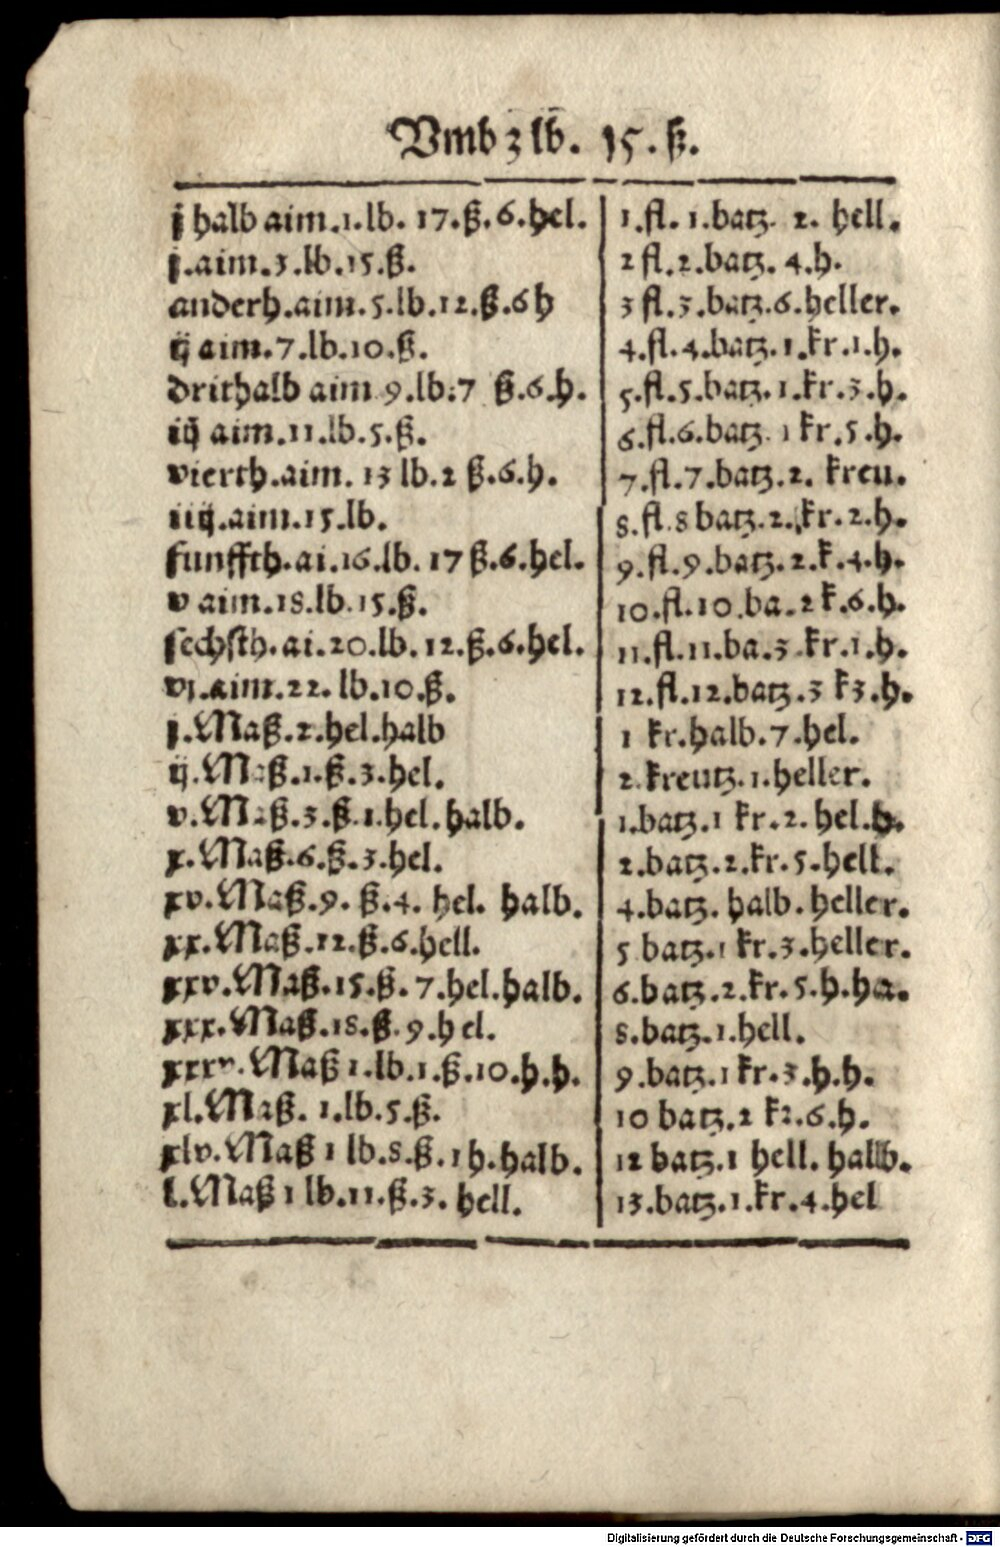 Vmb 3 lb. 15. ß.
j halb aim.1.lb. 17.ß.6.hel. 1.fl. 1.batz. 2. hell.
j.aim.3.lb.15.ß. 2 fl.2.batz. 4.h.
anderh.aim.5.lb.12.ß.6h 3 fl.3.batz.6.heller.
ij aim.7.lb.10.ß. 4.fl.4.batz.1.kr.1.h.
drithalb aim 9.lb:7 ß.6.h. 5.fl.5.batz.1.kr.3.h.
iij aim.11.lb.5.ß. 6.fl.6.batz. 1 kr.5.h.
vierth.aim. 13 lb.2 ß.6.h. 7.fl.7.batz.2. kreu.
iiij.aim.15.lb. 8.fl.8 batz.2.kr.2.h.
funffth.ai.16.lb. 17 ß.6.hel. 9.fl.9.batz.2.k.4.h.
v aim.18.lb.15.ß. 10.fl.10.ba.2 k.6.h.
sechsth.ai.20.lb.12.ß.6.hel. 11.fl.11.ba.3.kr.1.h.
vj.aim.22.lb.10.ß. 12.fl.12.batz.3 k3.h.
j.Maß.2.hel.halb 1 kr.halb.7.hel.
ij.Maß.1.ß.3.hel. 2.kreutz.1.heller.
v.Maß.3.ß.1.hel.halb. 1.batz.1 kr.2.hel.h.
x.Maß.6.ß.3.hel. 2.batz.2.kr.5.hell.
xv.Maß.9. ß.4. hel. halb. 4.batz. halb.heller.
xx.Maß.12.ß.6.hell. 5 batz.1 kr.3.heller.
xxv.Maß.15.ß.7.hel.halb. 6.batz.2.kr.5.h.ha.
xxx.Maß.18.ß.9.hel. 8.batz.1.hell.
xxxv.Maß 1.lb.1.ß.10.h.h. 9.batz.1 kr.3.h.h.
xl.Maß. 1.lb.5.ß. 10 batz.2 kr.6.h.
xlv.Maß 1 lb.8.ß.1h.halb. 12 batz.1 hell. halb.
l.Maß 1 lb.11.ß.3. hell. 13.batz.1.kr.4.hel
Digitalisierung gefördert durch die Deutsche Forschungsgemeinschaft - DFG